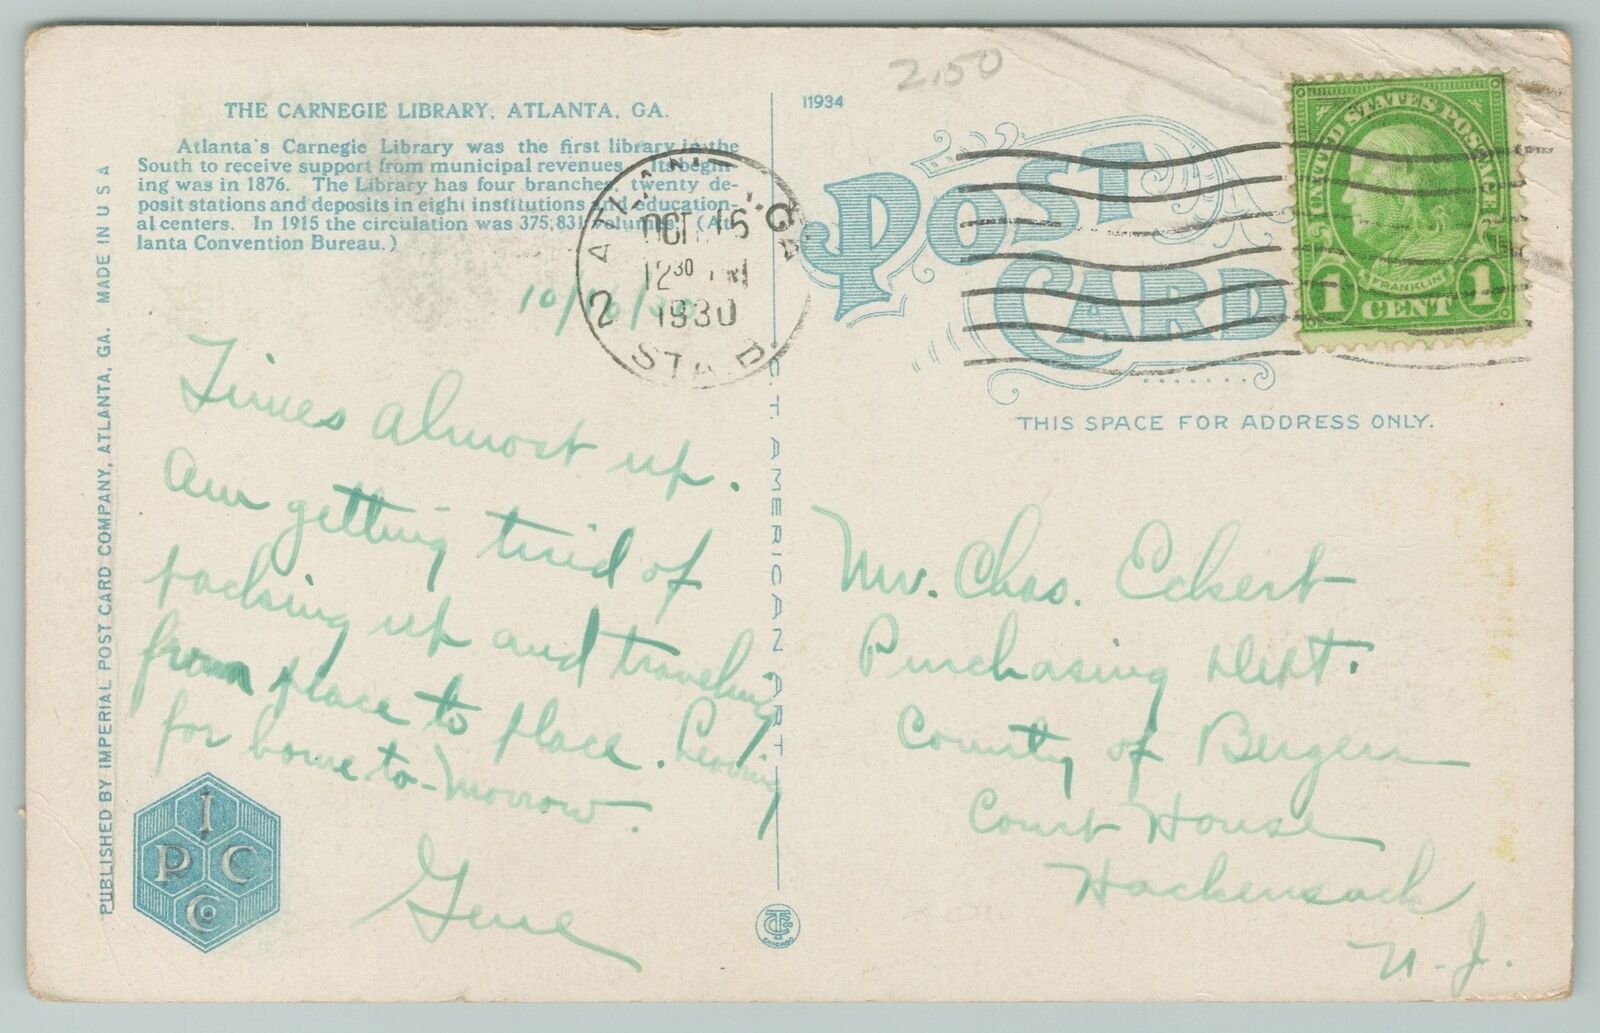 2.50
THE CARNEGIE LIBRARY, ATLANTA, GA.
Atlanta's Carnegie Library was the first library in the
South to receive support from municipal revenues. Its begin-
ing was in 1876. The Library has four branches, twenty de-
posit stations and deposits in eight institutions and education-
al centers. In 1915 the circulation was 375,831 volumes. (At-
lanta Convention Bureau.)
10/16/30
Times almost up.
Am getting tired of
packing up and traveling
from place to place. Leaving
for home to-morrow.
Gene
PUBLISHED BY IMPERIAL POST CARD COMPANY, ATLANTA, GA. MADE IN U S A
I
P C
Co
C.T. AMERICAN ART
CHICAGO
11934
POST
CARD
THIS SPACE FOR ADDRESS ONLY.
OCT 16
12 30 PM
1930
STA. D.
2
UNITED STATES POSTAGE
FRANKLIN
1 CENT 1
Mr. Chas. Eckert
Purchasing Dept.
County of Bergen
Court House
Hackensack
N. J.